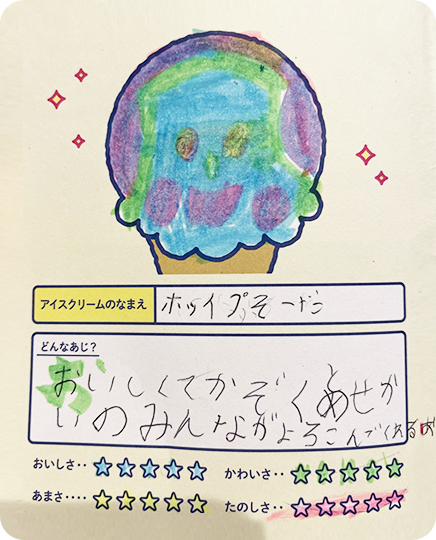 アイスクリームのなまえ ホッイプそーだ
どんなあじ？
おいしくてかぞくとあせか
いのみんながよろこんでくれるよ
おいしさ‥ ☆☆☆☆☆ かわいさ‥ ☆☆☆☆☆
あまさ‥‥ ☆☆☆☆☆ たのしさ‥ ☆☆☆☆☆